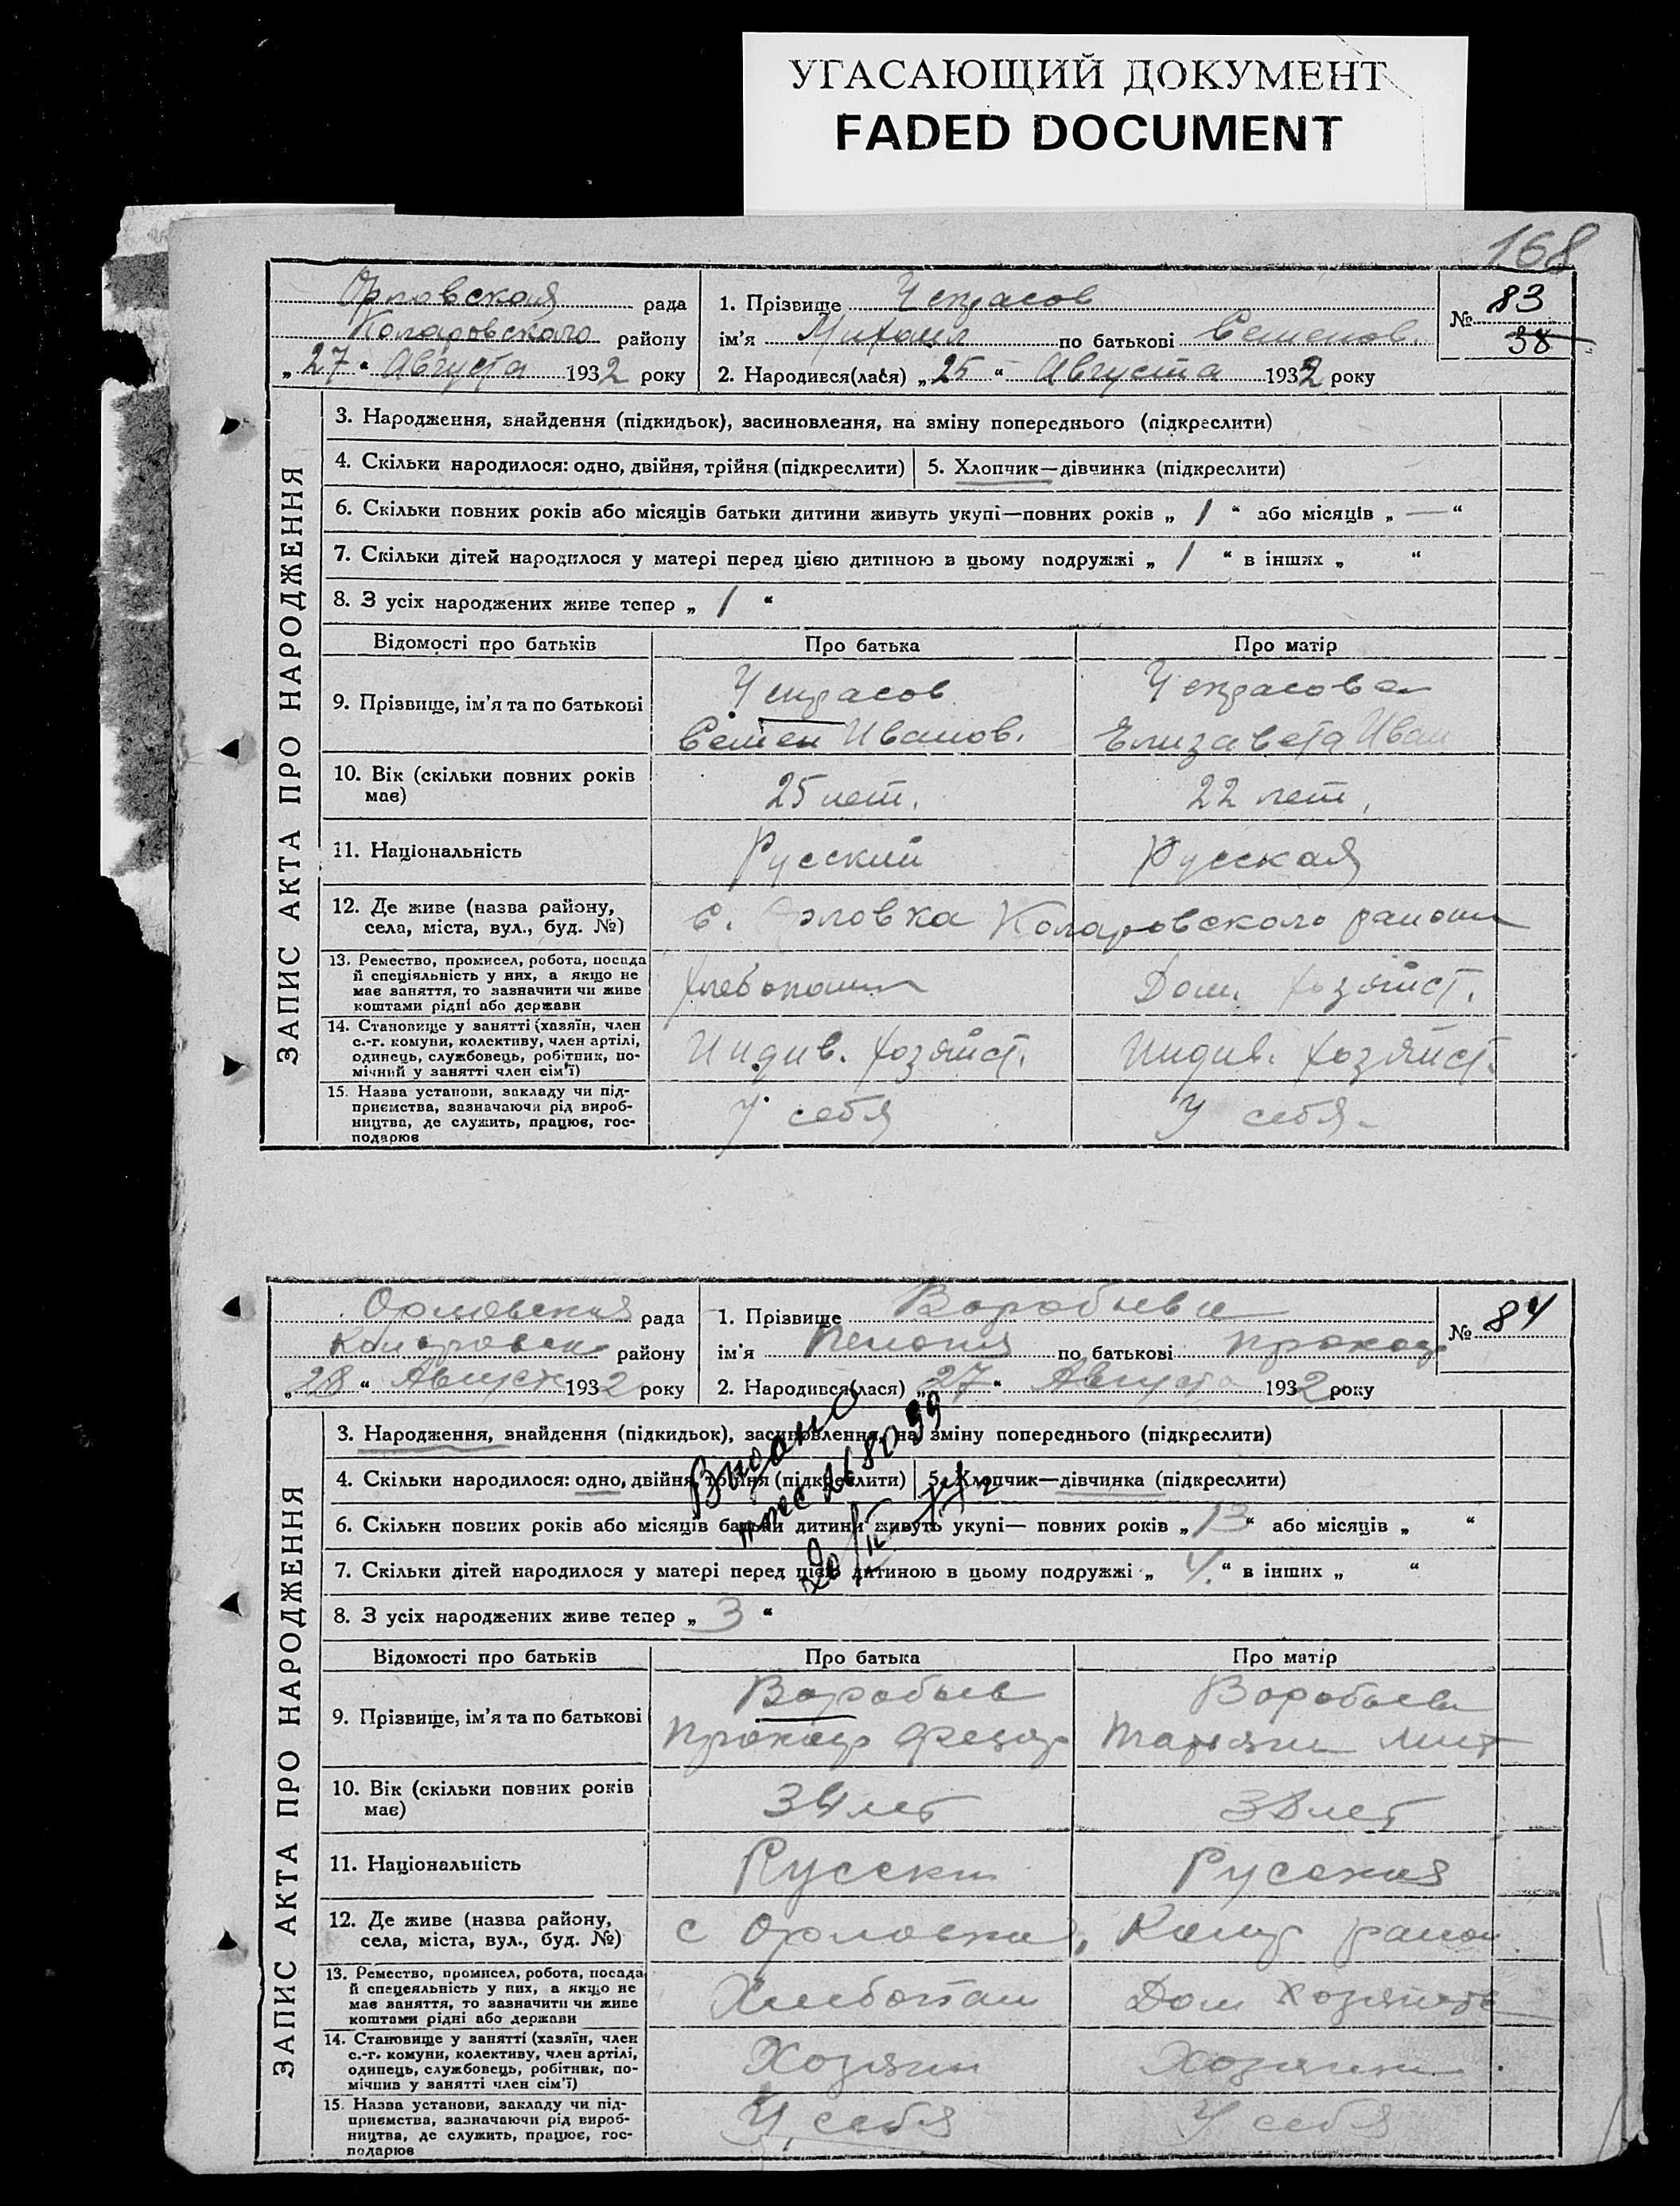 УГАСАЮЩИЙ ДОКУМЕНТ
FADED DOCUMENT
168
Орловская рада
Коларовского району
„27“ Августа 1932 року
1. Прізвище Чепрасов
ім'я Михаил по батькові Семенов
2. Народився(лася) „25“ Августа 1932 року
№ 83
38
ЗАПИС АКТА ПРО НАРОДЖЕННЯ
3. Народження, знайдення (підкидьок), засиновлення, на зміну попереднього (підкреслити)
4. Скільки народилося: одно, двійня, трійня (підкреслити)
5. Хлопчик—дівчинка (підкреслити)
6. Скільки повних років або місяців батьки дитини живуть укупі—повних років „1“ або місяців „—“
7. Скільки дітей народилося у матері перед цією дитиною в цьому подружжі „1“ в інших „ “
8. З усіх народжених живе тепер „1“
Відомості про батьків Про батька Про матір
9. Прізвище, ім'я та по батькові
Чепрасов
Семен Иванов.
Чепрасова
Елизавета Иван
10. Вік (скільки повних років
має)
25 лет.
22 лет,
11. Національність
Русский
Русская
12. Де живе (назва району,
села, міста, вул., буд. №)
С. Орловка Коларовского района
13. Ремество, промисел, робота, посада
й спеціяльність у них, а якщо не
має заняття, то зазначити чи живе
коштами рідні або держави
Хлебопашец
Дом. хозяйст.
14. Становище у занятті (хазяїн, член
с.-г. комуни, колективу, член артілі,
одинець, службовець, робітник, по-
мічний у занятті член сім'ї)
Индив. хозяйст.
Индив. хозяйст.
15. Назва установи, закладу чи під-
приємства, зазначаючи рід вироб-
ництва, де служить, працює, гос-
подарює
У себя
У себя
Орловская рада
Коларовск району
„28“ Август 1932 року
1. Прізвище Воробьева
ім'я по батькові Прокоф
2. Народився(лася) „27“ Августа 1932 року
№ 84
ЗАПИС АКТА ПРО НАРОДЖЕННЯ
3. Народження, знайдення (підкидьок), засиновлення, на зміну попереднього (підкреслити)
4. Скільки народилося: одно, двійня, трійня (підкреслити)
5. Хлопчик—дівчинка (підкреслити)
Видано
6. Скільки повних років або місяців батьки дитини живуть укупі— повних років „13“ або місяців „ “
7. Скільки дітей народилося у матері перед цією дитиною в цьому подружжі „4.“ в інших „ “
8. З усіх народжених живе тепер „3“
Відомості про батьків Про батька Про матір
9. Прізвище, ім'я та по батькові
Воробьев
Прокоф Федор
Воробьева
Татьяна Мит
10. Вік (скільки повних років
має)
34 лет
38 лет
11. Національність
Русски
Русская
12. Де живе (назва району,
села, міста, вул., буд. №)
с Орловка, Колар район
13. Ремество, промисел, робота, посада
й спецеяльність у них, а якщо не
має заняття, то зазначити чи живе
коштами рідні або держави
Хлебопаш
Дом хозяйств
14. Становище у занятті (хазяїн, член
с.-г. комуни, колективу, член артілі,
одинець, службовець, робітник, по-
мічний у занятті член сім'ї)
Хозяин
Хозяйка
15. Назва установи, закладу чи під-
приємства, зазначаючи рід вироб-
ництва, де служить, працює, гос-
подарює
У себя
У себя